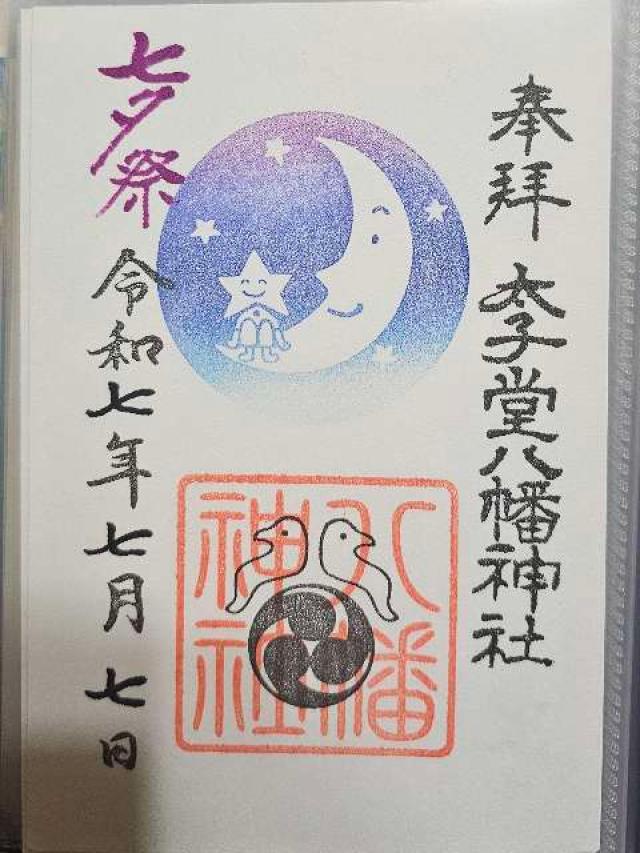 奉拝
太子堂八幡神社
七夕祭
令和七年七月七日
八幡
神社